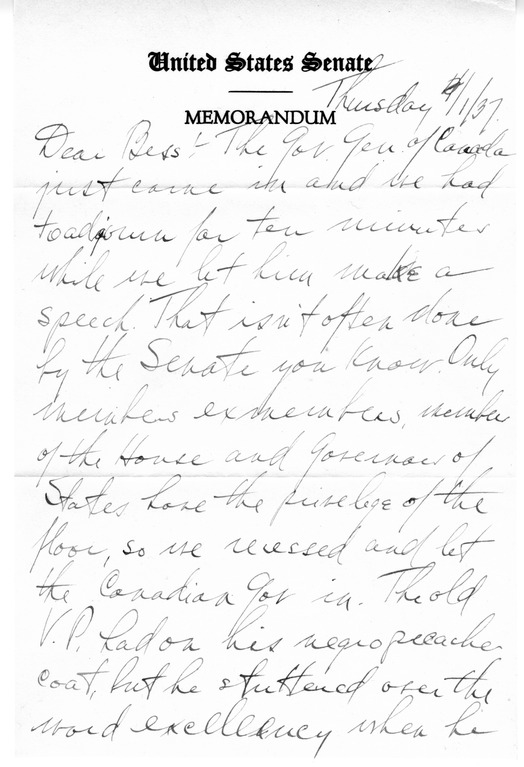 United States Senate
Thursday 4/1/37.
MEMORANDUM
Dear Bess:- The Gov. Gen. of Canada
just came in and we had
to adjourn for ten minutes
while we let him make a
speech. That isn't often done
by the Senate you know. Only
members exmembers, member
of the House and Governors of
States have the privelege of the
floor, so we recessed and let
the Canadian Gov in. The old
V.P. had on his negro preacher
coat, but he stuttered over the
word excellency when he